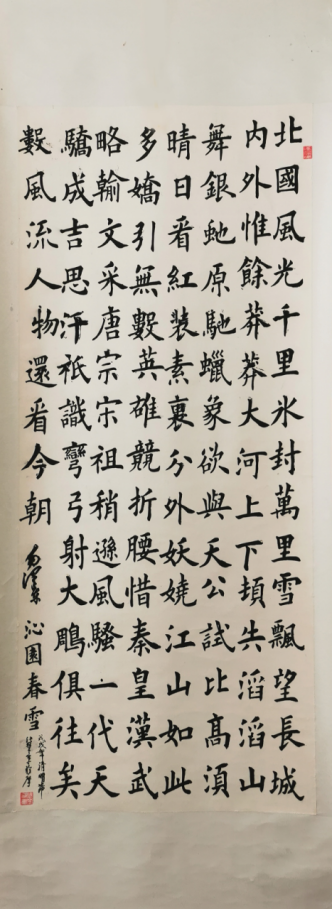 北國風光千里冰封萬里雪飄望長城
内外惟餘莽莽大河上下頓失滔滔山
舞銀虵原馳蠟象欲與天公試比高須
晴日看紅裝素裹分外妖嬈江山如此
多嬌引無數英雄競折腰惜秦皇漢武
略輸文采唐宗宋祖稍遜風騷一代天
驕成吉思汗衹識彎弓射大鵰俱往矣
數風流人物還看今朝
沁園春雪